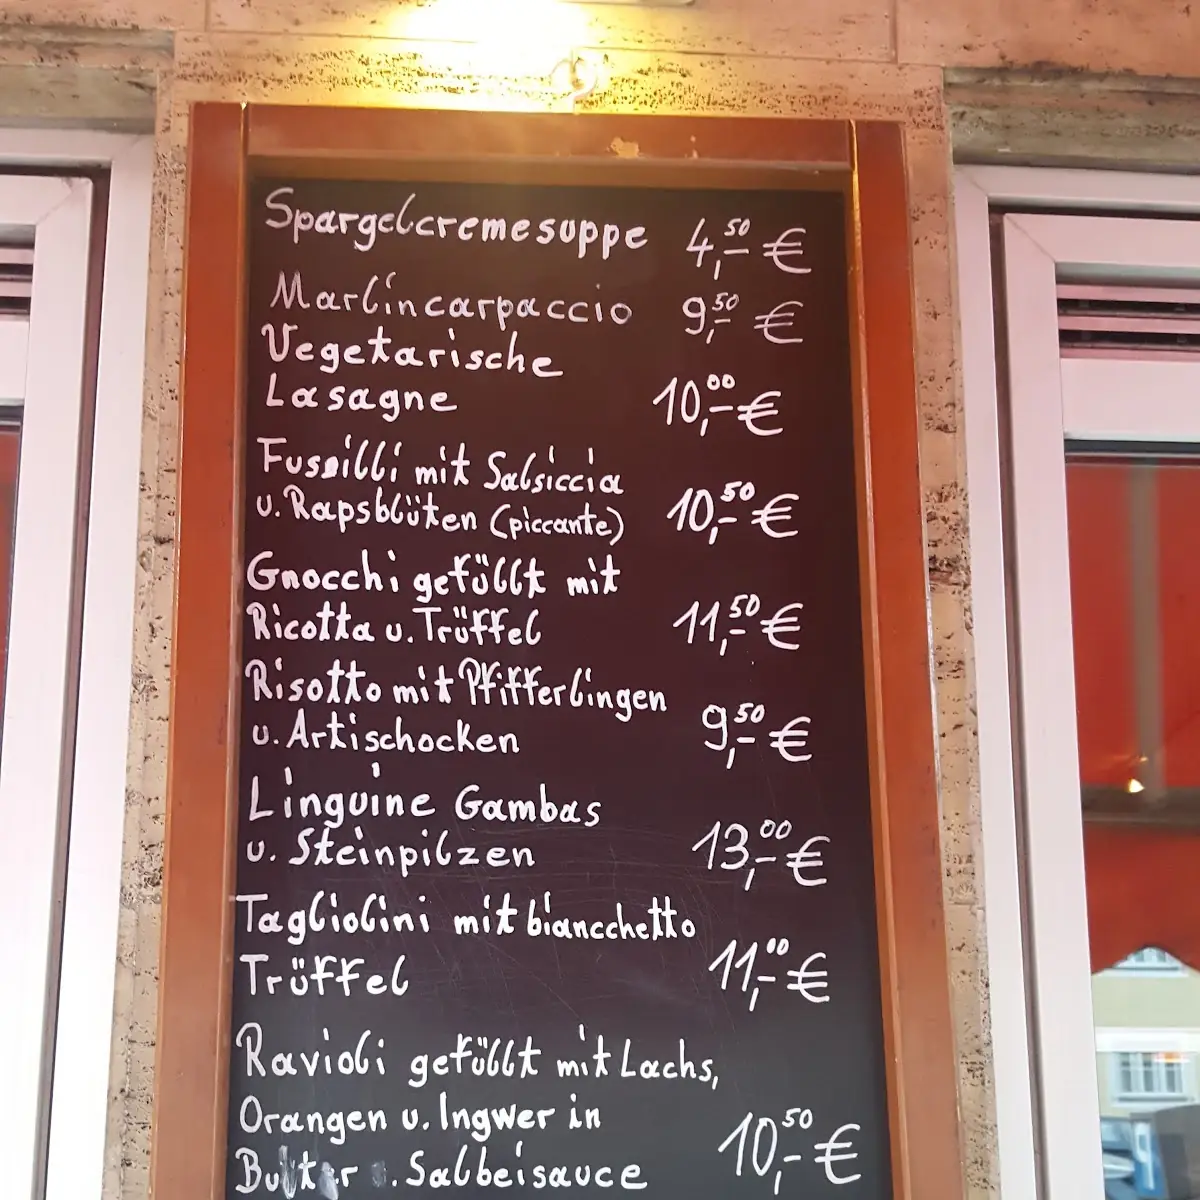 Spargelcremesuppe 4,50 €
Marlincarpaccio 9,50 €
Vegetarische
Lasagne 10,00 €
Fussilli mit Salsiccia
u. Rapsblüten (piccante) 10,50 €
Gnocchi gefüllt mit
Ricotta u. Trüffel 11,50 €
Risotto mit Pfifferlingen
u. Artischocken 9,50 €
Linguine Gambas
u. Steinpilzen 13,00 €
Tagliolini mit biancchetto
Trüffel 11,00 €
Ravioli gefüllt mit Lachs,
Orangen u. Ingwer in
Butter . Salbeisauce 10,50 €